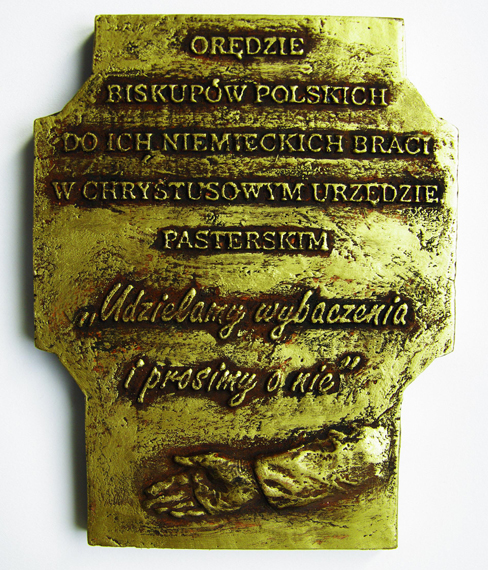 ORĘDZIE
BISKUPÓW POLSKICH
DO ICH NIEMIECKICH BRACI
W CHRYSTUSOWYM URZĘDZIE
PASTERSKIM
„Udzielamy wybaczenia
i prosimy o nie”